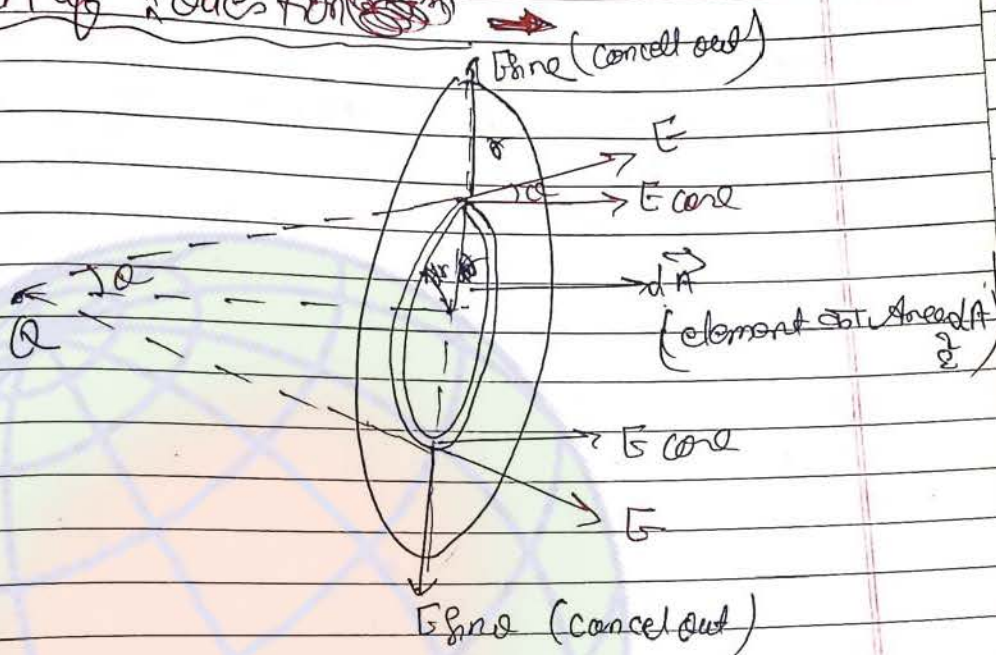 Question
Esinθ (cancell out)
r
E
θ
E cosθ
r
dA
θ
Q
(element का Area dA
है)
E cosθ
E
Esinθ (cancel out)